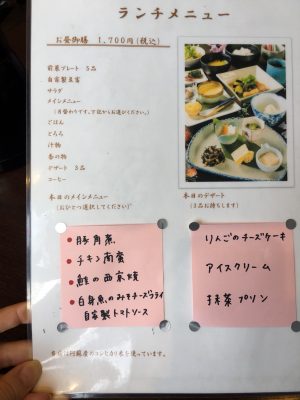 ランチメニュー
お昼御膳　1,700円(税込)
前菜プレート　5品
自家製豆富
サラダ
メインメニュー
(日替わりです。下記からお選びください。)
ごはん
とろろ
汁物
香の物
デザート　3品
コーヒー
本日のメインメニュー
(おひとつ選択してください)
本日のデザート
(3品お持ちします)
豚角煮
チキン南蛮
鮭の西京焼
白身魚のみそチーズフライ
自家製トマトソース
りんごのチーズケーキ
アイスクリーム
抹茶プリン
阿蘇産のコシヒカリ米を使っています。